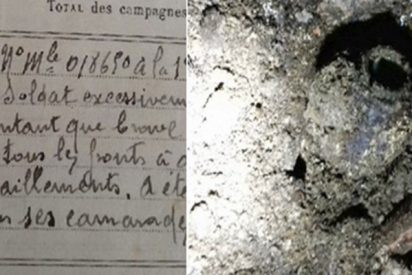 TOTAL des campagnes
N° Mle 018650 à la 1
Soldat excessivem
tant que brave
tous les fronts à
aillements, a été
ses camarades